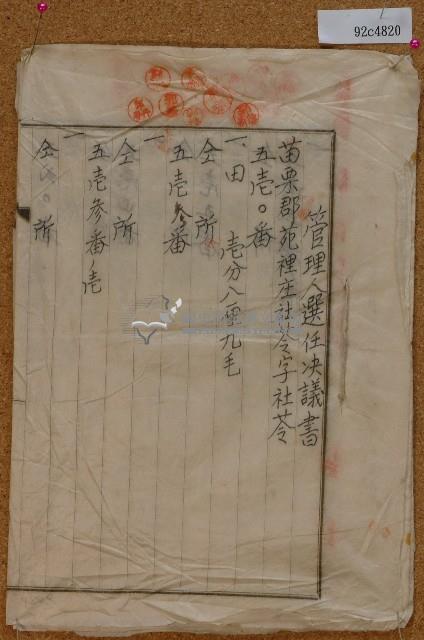 92c4820
管理人選任决議書
苗栗郡苑裡庄社苓字社苓
五壱〇番
一、田 壱分八厘九毛
仝所
五壱参番
一
仝所
五壱参番ノ壱
一
仝所